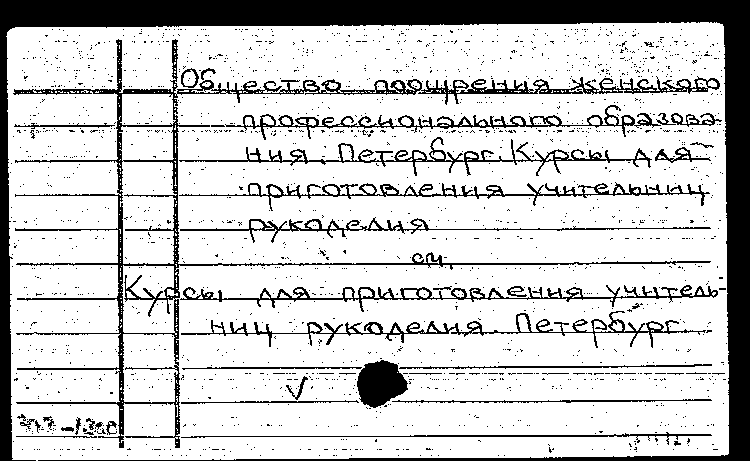 Общество поощрения женского
профессионального образова-
ния. Петербург. Курсы для
приготовления учительниц
рукоделия
см.
Курсы для приготовления учитель-
ниц рукоделия. Петербург.